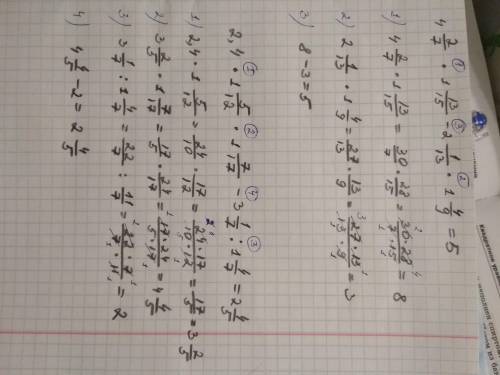 4 2/7 · 1 13/15 - 2 1/13 · 1 4/9 = 5
1) 4 2/7 · 1 13/15 = 30/7 · 28/15 = 30·28/7·15 = 8
2) 2 1/13 · 1 4/9 = 27/13 · 13/9 = 27·13/13·9 = 3
3) 8 - 3 = 5
2,4 · 1 5/12 · 1 7/17 - 3 1/7 : 1 4/7 = 2 4/5
1) 2,4 · 1 5/12 = 24/10 · 17/12 = 24·17/10·12 = 17/5 = 3 2/5
2) 3 2/5 · 1 7/17 = 17/5 · 24/17 = 17·24/5·17 = 4 4/5
3) 3 1/7 : 1 4/7 = 22/7 : 11/7 = 22·7/7·11 = 2
4) 4 4/5 - 2 = 2 4/5